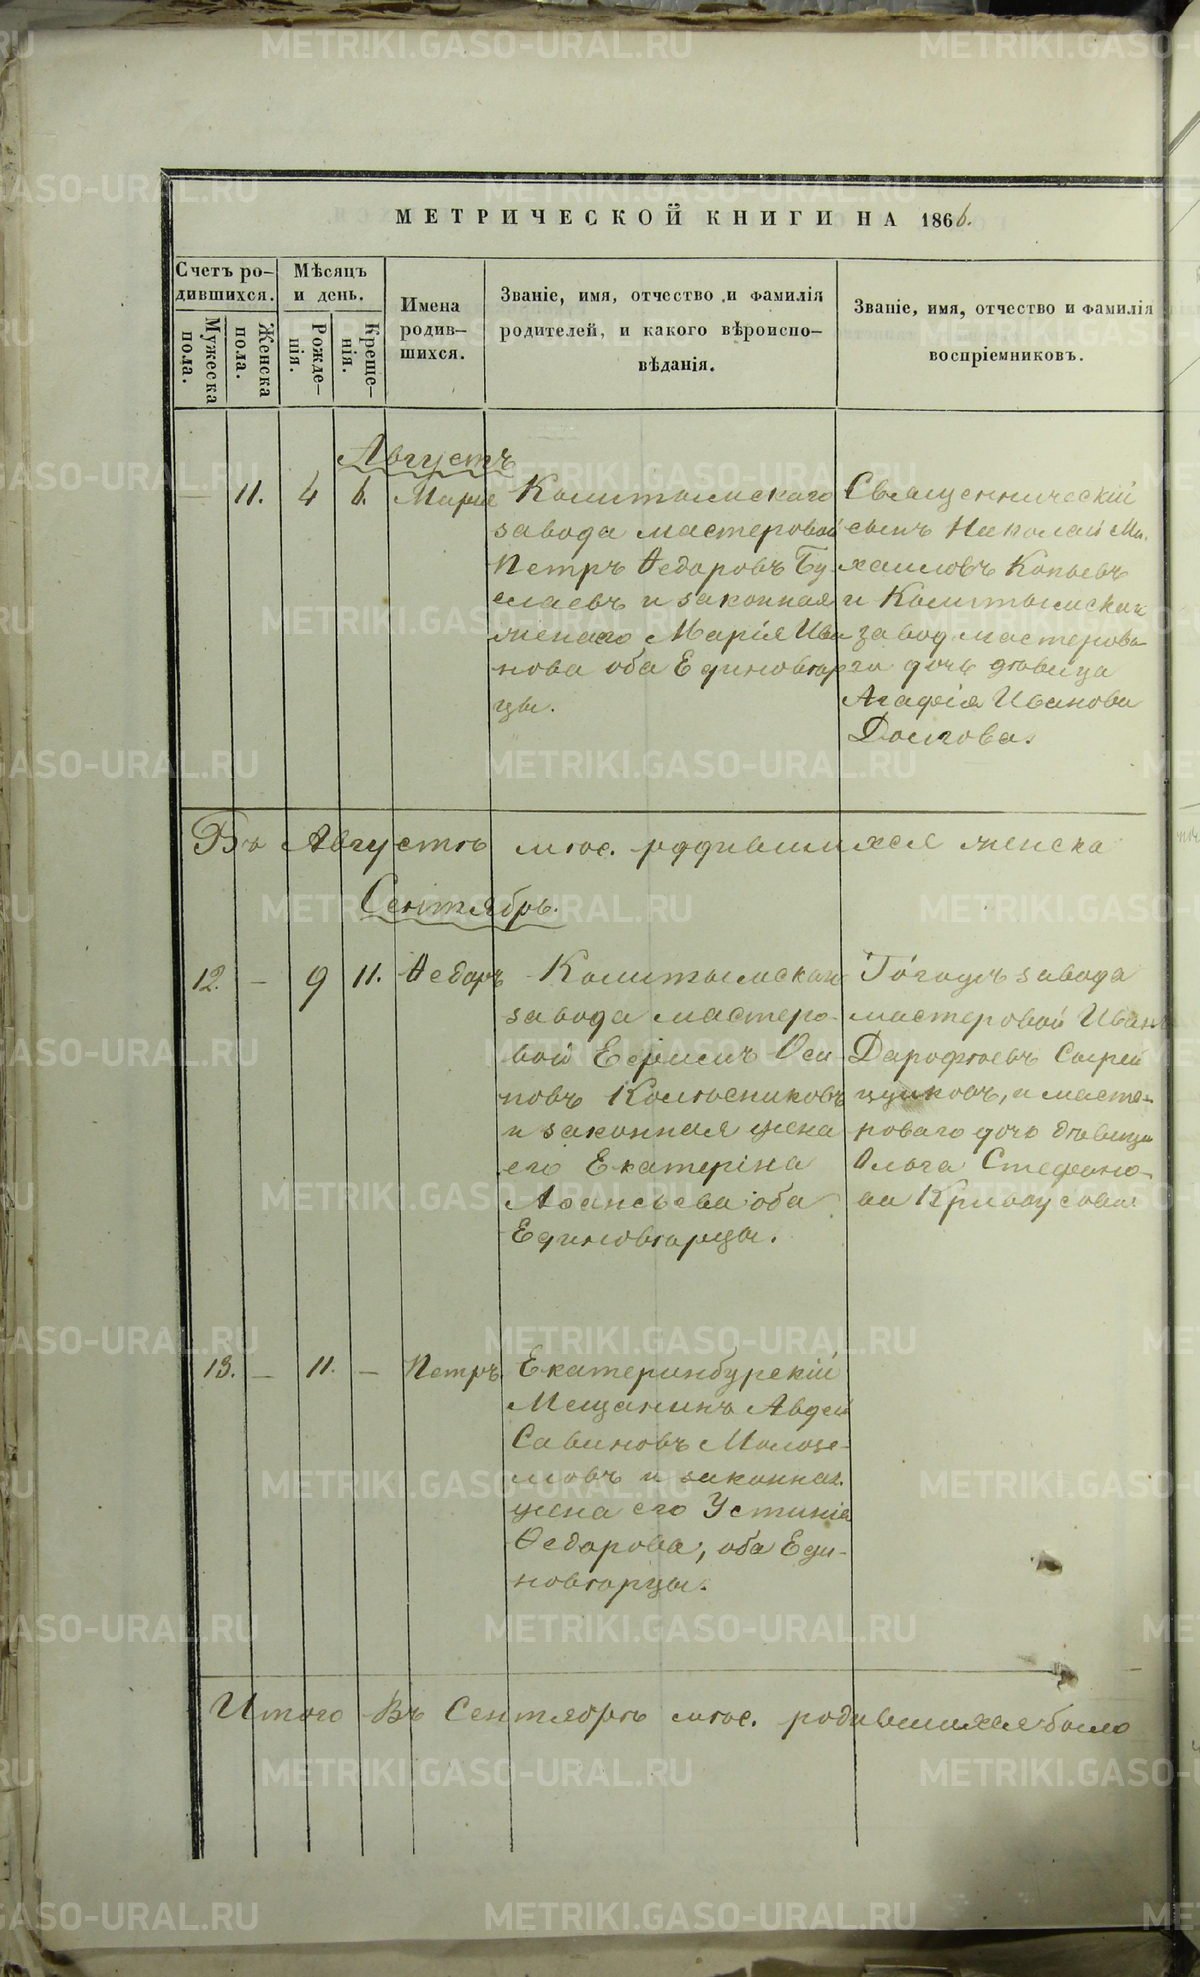 МЕТРИЧЕСКОЙ КНИГИ НА 1866.
Счетъ ро-
дившихся.
Мужеска
пола.
Женска
пола.
Мѣсяцъ
и день.
Рожде-
нія.
Креще-
нія.
Имена
родив-
шихся.
Званіе, имя, отчество и фамилія
родителей, и какого вѣроиспо-
вѣданія.
Званіе, имя, отчество и фамилія
воспріемниковъ.
Августъ
— 11. 4 6. Марія
завода мастеровой
Петръ Ѳедоровъ Бу
слаевъ и законная
жена его Марія Ива
нова оба Единовѣр
цы.
Священническій
сынъ Николай Ми
хаиловъ Копьевъ
и
завод. мастерова-
го дочь дѣвица
Агафія Иванова
Долгова.
Въ Августѣ мѣс. родившихся женска
Сентябрь.
12. — 9 11. Ѳедоръ
завода мастеро-
вой Ефимъ Оси
повъ Колѣсниковъ
и законная жена
его Екатеріна
Афанасьева оба
Единовѣрцы.
завода
мастеровой Иванъ
Дорофѣевъ Сырей
щиковъ, и масте-
роваго дочь дѣвица
Ольга Стефано-
ва
13. — 11. — Петръ
Екатеринбурскій
Мещанинъ Авдей
Савиновъ
и законная
жена его Устинія
Ѳедорова, оба Еди-
новѣрцы.
Итого Въ Сентябрѣ мѣс. родившихся было